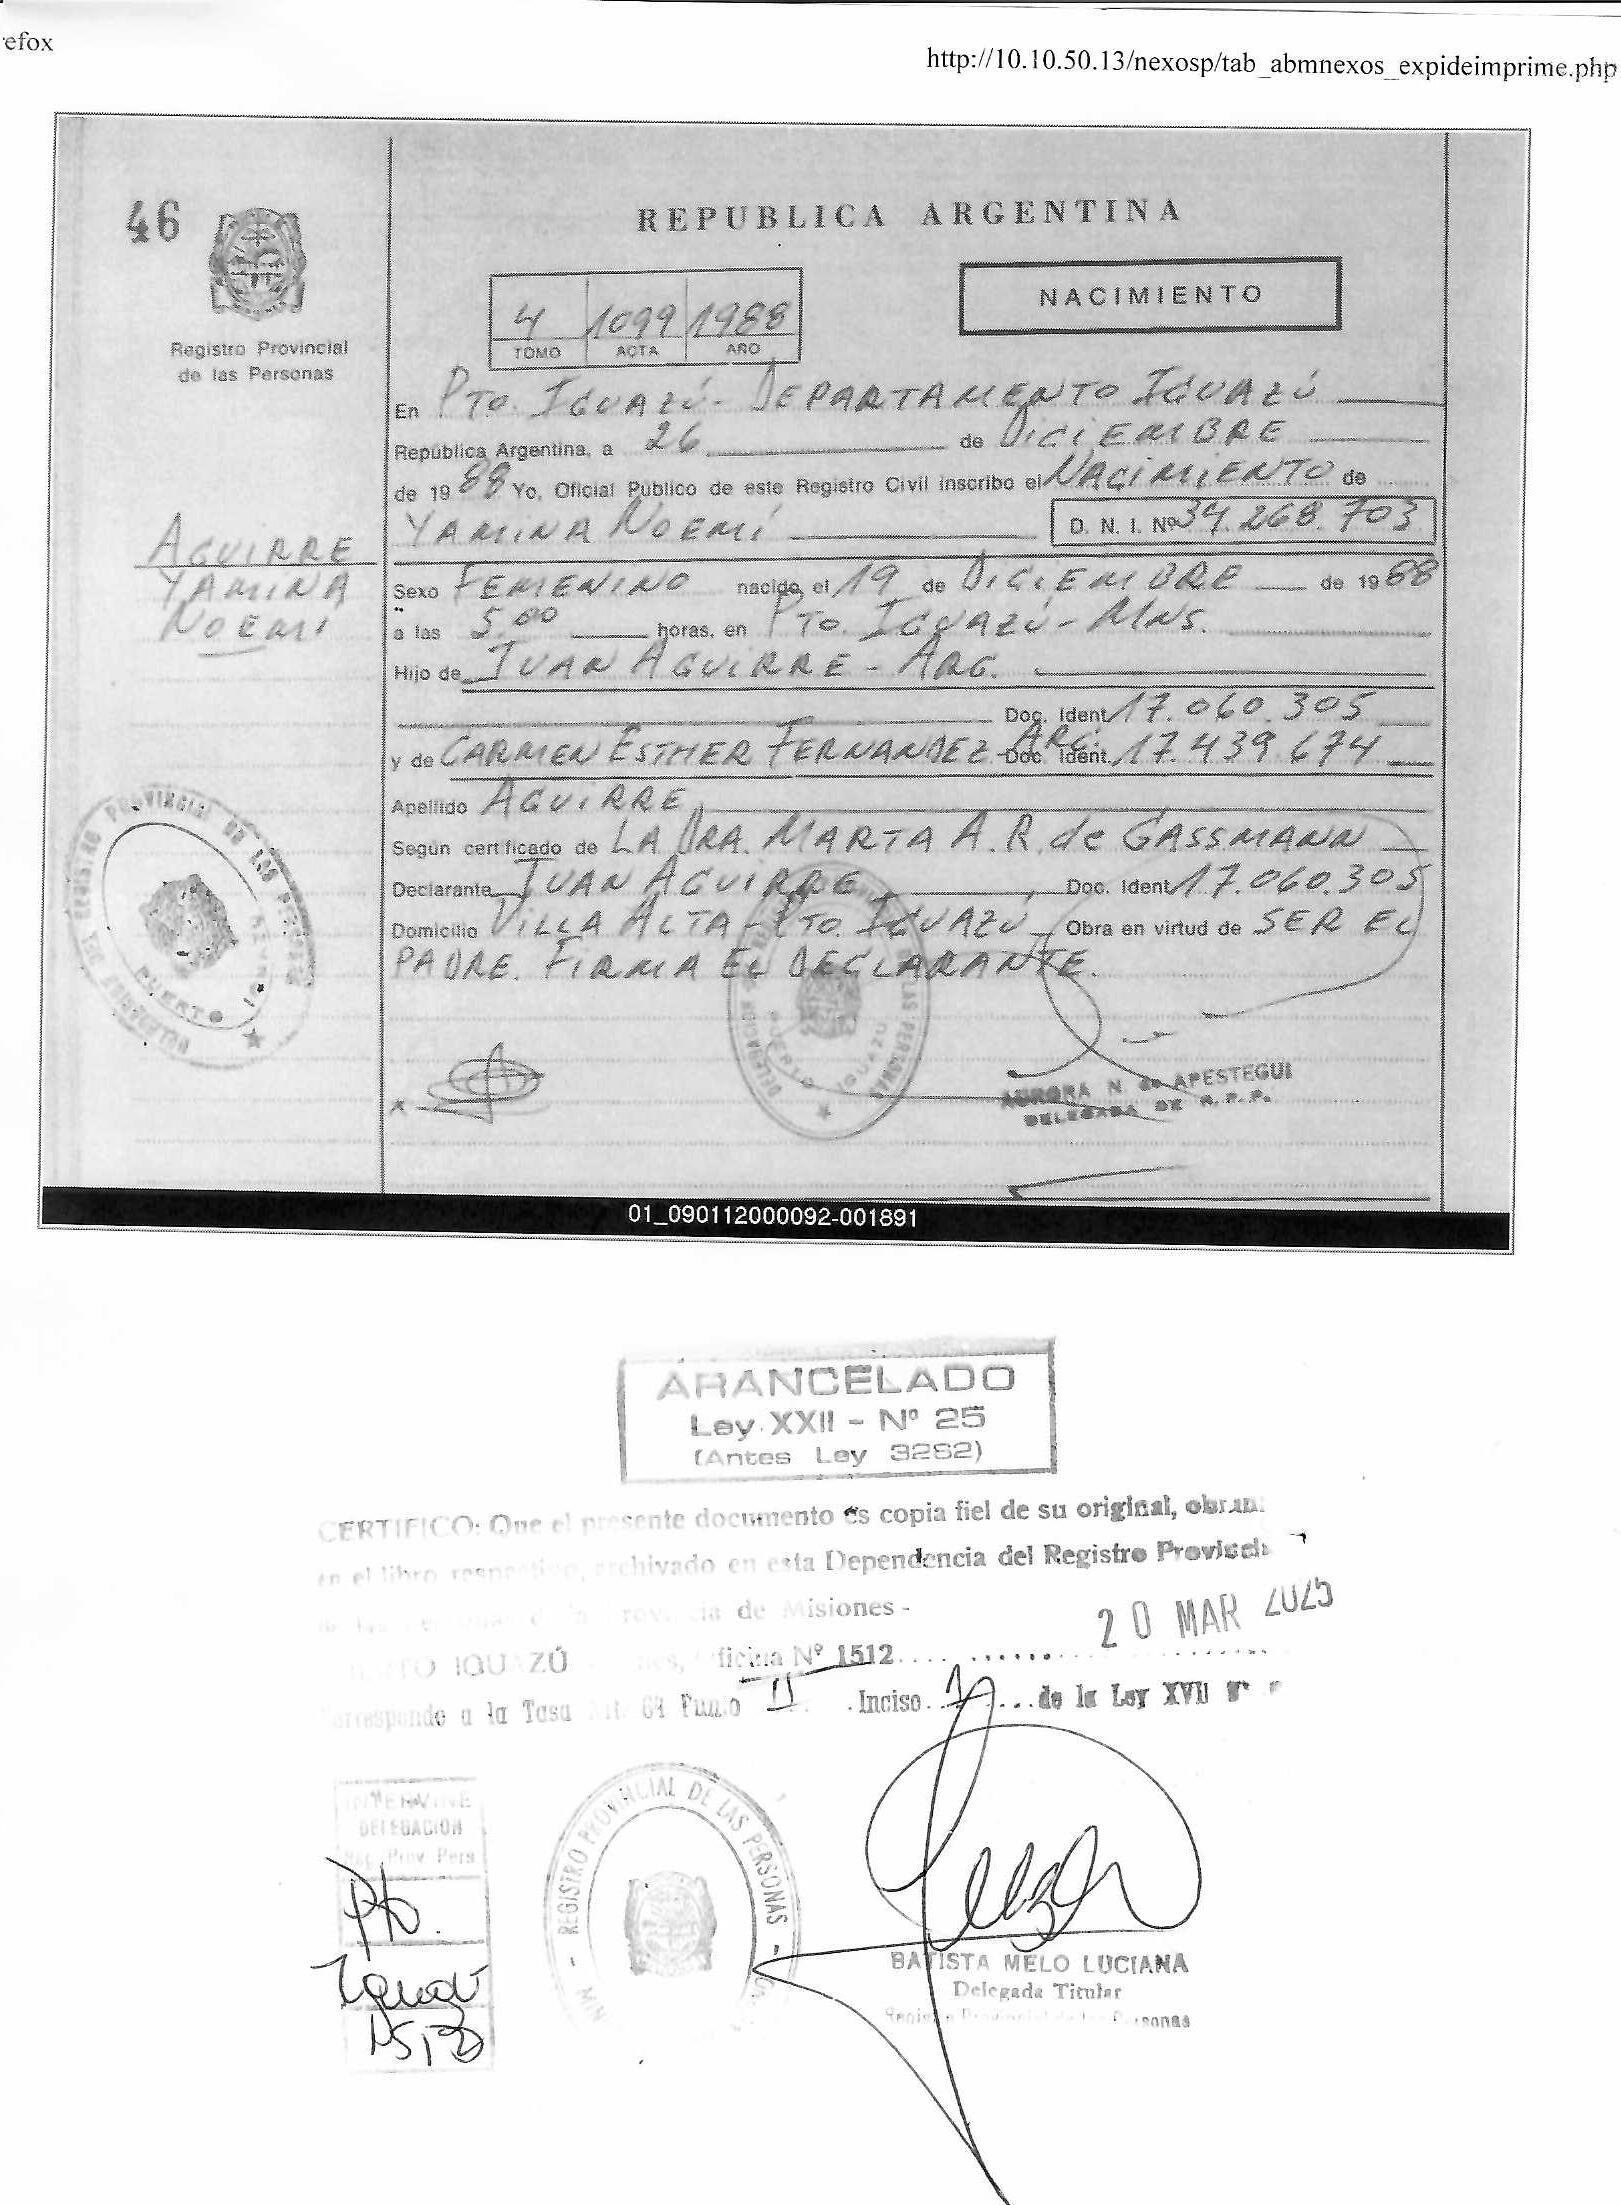 efox
http://10.10.50.13/nexosp/tab_abmnexos_expideimprime.php
46
REPUBLICA ARGENTINA
NACIMIENTO
4 1099 1988
TOMO ACTA AÑO
Registro Provincial
de las Personas
En PTO. IGUAZÚ - DEPARTAMENTO IGUAZÚ
República Argentina, a 26 de DICIEMBRE
de 1988 Yo, Oficial Público de este Registro Civil inscribo el NACIMIENTO de
YAMINA NOEMÍ D. N. I. Nº 34.268.703
AGUIRRE
YAMINA
NOEMI
Sexo FEMENINO nacido el 19 de DICIEMBRE de 1988
a las 5.00 horas, en PTO. IGUAZÚ - MNS.
Hijo de JUAN AGUIRRE - ARG.
Doc. Ident. 17.060.305
y de CARMEN ESTHER FERNANDEZ - ARG. Doc. Ident. 17.439.674
Apellido AGUIRRE
Según certificado de LA DRA. MARTA A. R. de GASSMANN
Declarante JUAN AGUIRRE Doc. Ident. 17.060.305
Domicilio VILLA ALTA - PTO. IGUAZÚ Obra en virtud de SER EL
PADRE. FIRMA EL DECLARANTE.
AURORA N. de APESTEGUI
DELEGADA DE R.P.P.
01_090112000092-001891
ARANCELADO
Ley XXII - Nº 25
(Antes Ley 3262)
CERTIFICO: Que el presente documento es copia fiel de su original,
en el libro respectivo, archivado en esta Dependencia del Registro
de Misiones -
20 MAR 2025
IGUAZÚ Nº 1512
a la Tasa 64 II Inciso de la Ley XVII
INTERVINE
DELEGACION
Prov Pers
Pto.
Iguazú
1512
REGISTRO PROVINCIAL DE LAS PERSONAS
BATISTA MELO LUCIANA
Delegada Titular